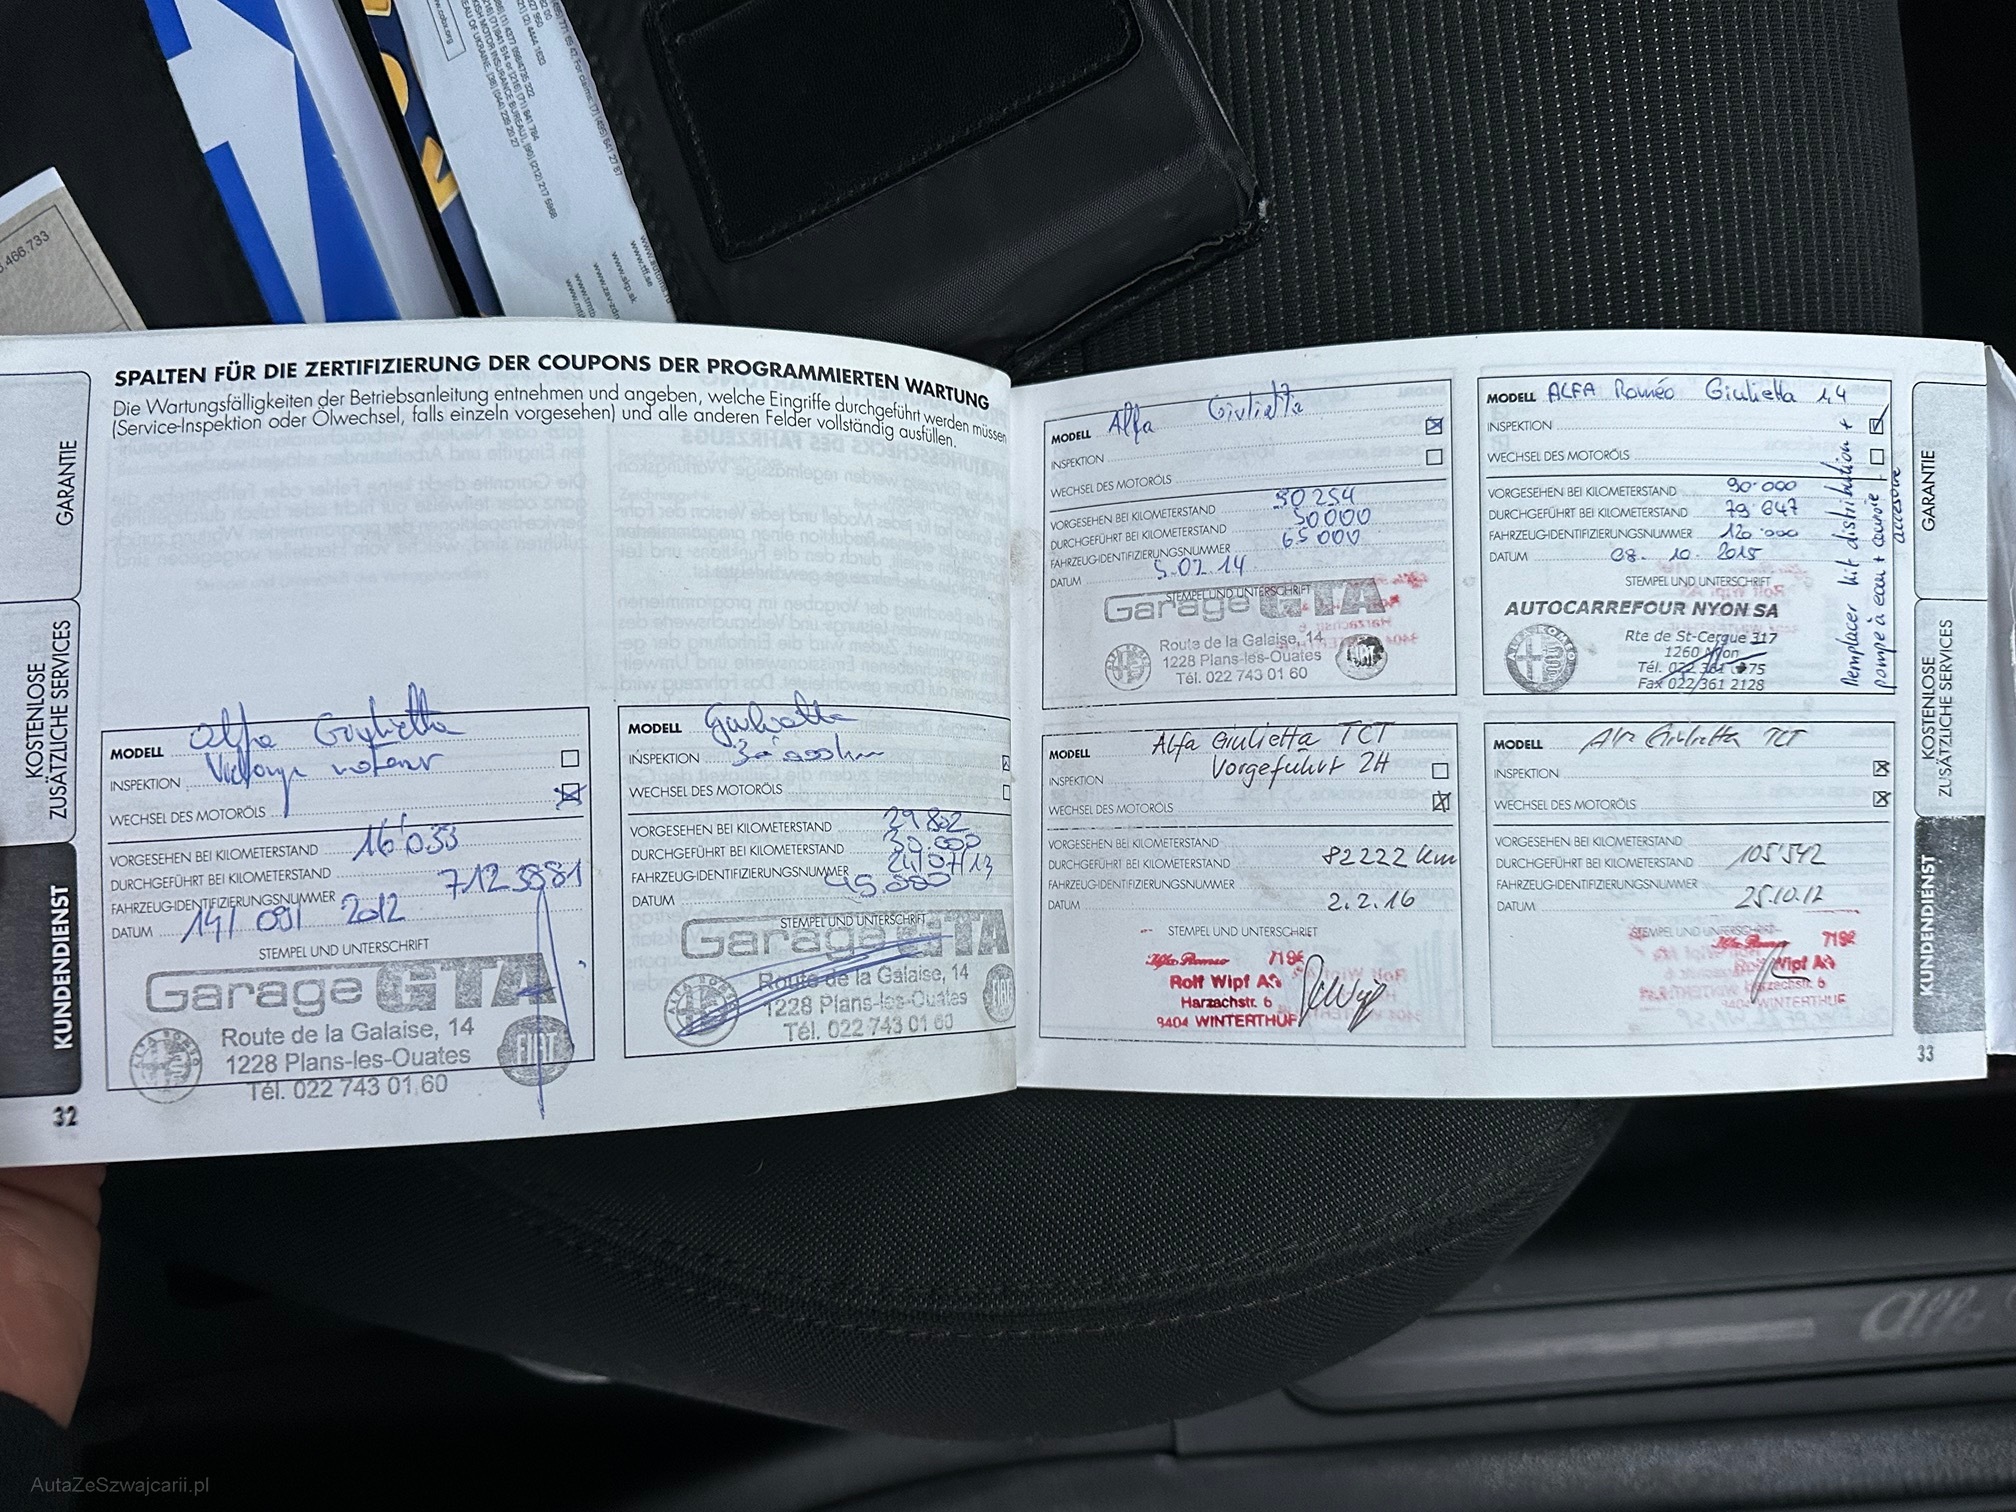 .466.733
www.cobx.org
(495) 771 69 47, For claims: (7) (495) 641 27 87
SPALTEN FÜR DIE ZERTIFIZIERUNG DER COUPONS DER PROGRAMMIERTEN WARTUNG
Die Wartungsfälligkeiten der Betriebsanleitung entnehmen und angeben, welche Eingriffe durchgeführt werden müssen
(Service-Inspektion oder Ölwechsel, falls einzeln vorgesehen) und alle anderen Felder vollständig ausfüllen.
GARANTIE
KOSTENLOSE
ZUSÄTZLICHE SERVICES
KUNDENDIENST
MODELL Alfa Giulietta
INSPEKTION
WECHSEL DES MOTORÖLS
VORGESEHEN BEI KILOMETERSTAND 16'033
DURCHGEFÜHRT BEI KILOMETERSTAND
FAHRZEUG-IDENTIFIZIERUNGSNUMMER 7123881
DATUM 14/09/2012
STEMPEL UND UNTERSCHRIFT
Garage GTA
Route de la Galaise, 14
1228 Plans-les-Ouates
Tél. 022 743 01 60
ALFA ROMEO
FIAT
32
MODELL Giulietta
INSPEKTION 30'000km
WECHSEL DES MOTORÖLS
VORGESEHEN BEI KILOMETERSTAND 29802
DURCHGEFÜHRT BEI KILOMETERSTAND 30.000
FAHRZEUG-IDENTIFIZIERUNGSNUMMER 24/07/13
DATUM 45000
STEMPEL UND UNTERSCHRIFT
Garage GTA
Route de la Galaise, 14
1228 Plans-les-Ouates
Tél. 022 743 01 60
MODELL Alfa Giulietta
INSPEKTION
WECHSEL DES MOTORÖLS
VORGESEHEN BEI KILOMETERSTAND 50254
DURCHGEFÜHRT BEI KILOMETERSTAND 50000
FAHRZEUG-IDENTIFIZIERUNGSNUMMER 65000
DATUM 5.02.14
STEMPEL UND UNTERSCHRIFT
Garage GTA
Route de la Galaise, 14
1228 Plans-les-Ouates
Tél. 022 743 01 60
FIAT
MODELL ALFA Roméo Giulietta 1,4
INSPEKTION
WECHSEL DES MOTORÖLS
VORGESEHEN BEI KILOMETERSTAND 90'000
DURCHGEFÜHRT BEI KILOMETERSTAND 79'847
FAHRZEUG-IDENTIFIZIERUNGSNUMMER 120'000
DATUM 08.10.2015
STEMPEL UND UNTERSCHRIFT
AUTOCARREFOUR NYON SA
Rte de St-Cergue 317
1260 Nyon
Fax 022/361 2128
Remplacer kit distribution +
pompe à eau + courroie
accessoire
MODELL Alfa Giulietta TCT
Vorgeführt ZH
INSPEKTION
WECHSEL DES MOTORÖLS
VORGESEHEN BEI KILOMETERSTAND
DURCHGEFÜHRT BEI KILOMETERSTAND 82222 km
FAHRZEUG-IDENTIFIZIERUNGSNUMMER
DATUM 2.2.16
STEMPEL UND UNTERSCHRIFT
Alfa Romeo 7192
Rolf Wipf AG
Harzachstr. 6
8404 WINTERTHUR
MODELL Alfa Giulietta TCT
INSPEKTION
WECHSEL DES MOTORÖLS
VORGESEHEN BEI KILOMETERSTAND
DURCHGEFÜHRT BEI KILOMETERSTAND 105'542
FAHRZEUG-IDENTIFIZIERUNGSNUMMER
DATUM 25.10.17
STEMPEL UND UNTERSCHRIFT
Alfa Romeo 7192
Rolf Wipf AG
Harzachstr. 6
8404 WINTERTHUR
GARANTIE
KOSTENLOSE
ZUSÄTZLICHE SERVICES
KUNDENDIENST
33
AutaZeSzwajcarii.pl